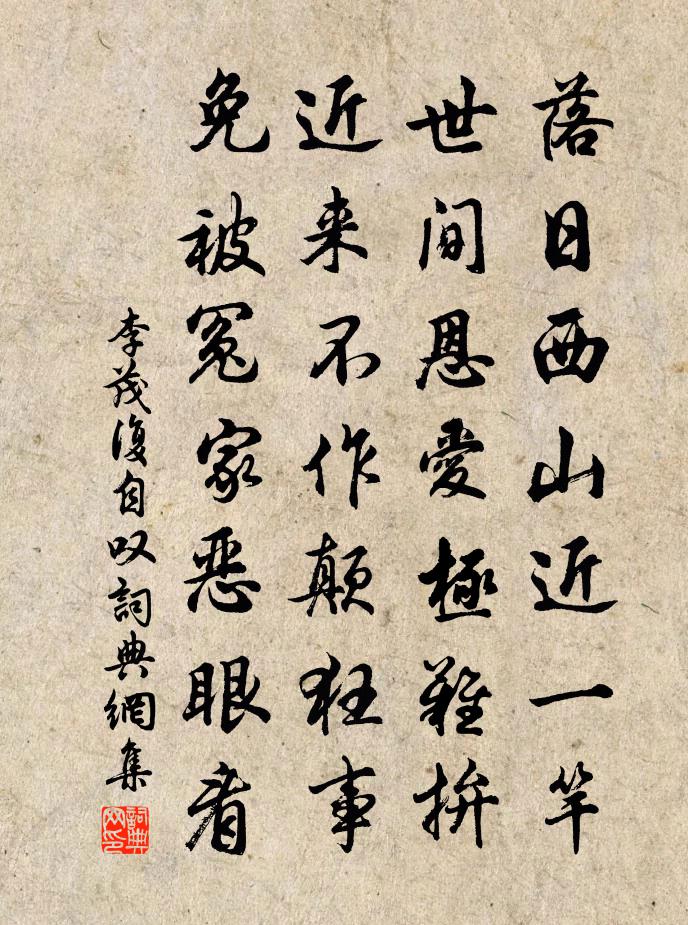 落日西山近一竿
世间恩愛極難拚
近来不作颠狂事
免被冤家恶眼看
李茂復自叹詞典網集
詞典网印